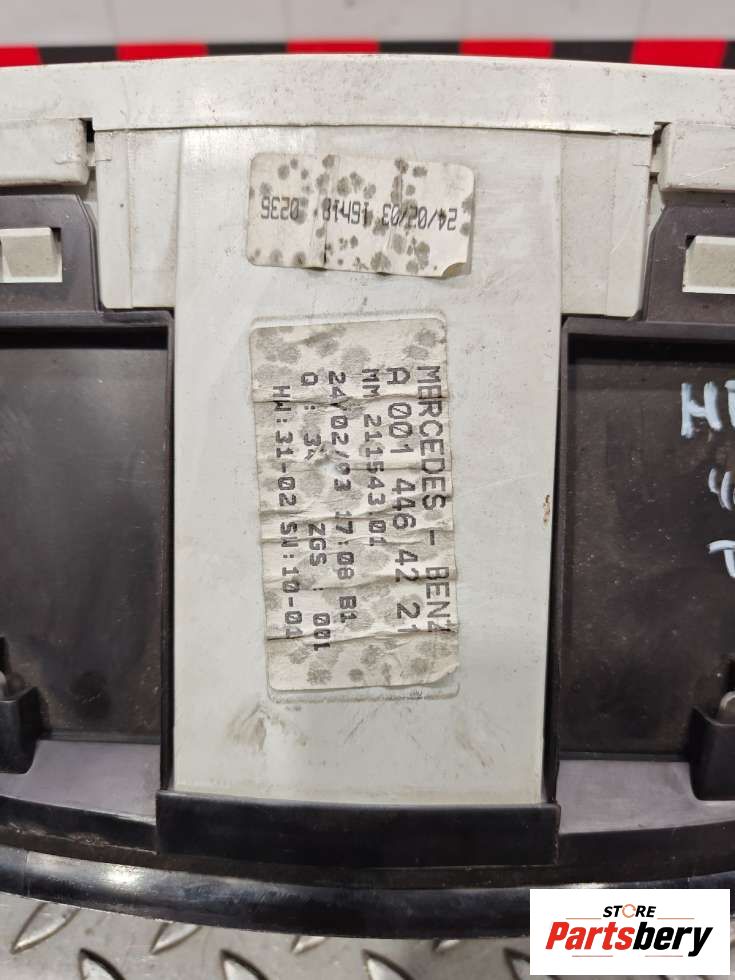 24/02/03 16418 0236
MERCEDES - BENZ
A 001 446 42 21
MM 211543.01
24/02/03 17:08 B1
Q : 3 ZGS : 001
HW:31-02 SW:10-04
STORE
Partsbery